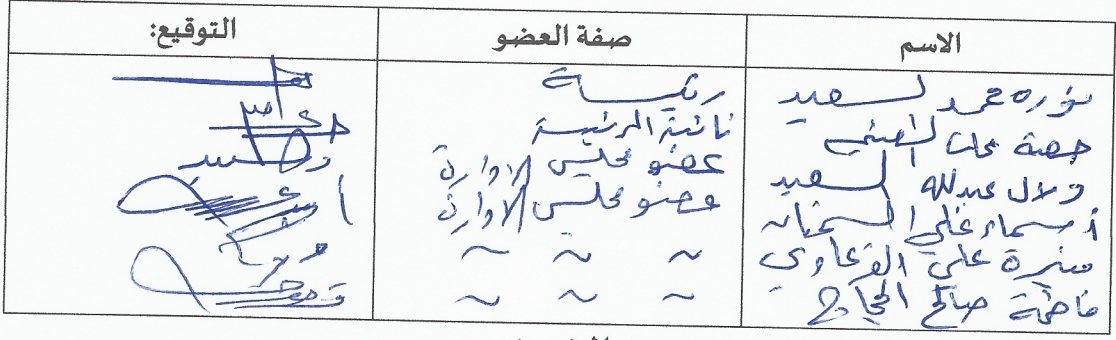 الاسم صفة العضو التوقيع:
نوره محمد السعيد رئيسة
حصة نائبة الرئيسة
دلال عبدالله السعيد عضو مجلس الادارة
أسماء علي عضو مجلس الادارة
منيرة علي القرعاوي ~ ~ ~
فاطمة صالح الحجاج ~ ~ ~